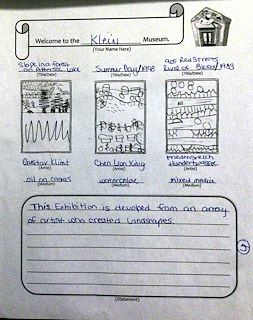 Welcome to the Klein Museum.
(Your Name Here)
Slope in a forest
on Attersee Lake
(Title/Date)
Summer Day/1958
(Title/Date)
Red Streets
River of Blood/1983
(Title/Date)
Gustav Klimt
(Artist)
Chen Lian Xing
(Artist)
friedensreich
Hundertwasser
(Artist)
oil on canvas
(Medium)
watercolor
(Medium)
Mixed media
(Medium)
This Exhibition is devolped from an array
of artist who created Landscapes.
(Statement)